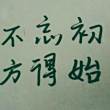 不忘初
方得始